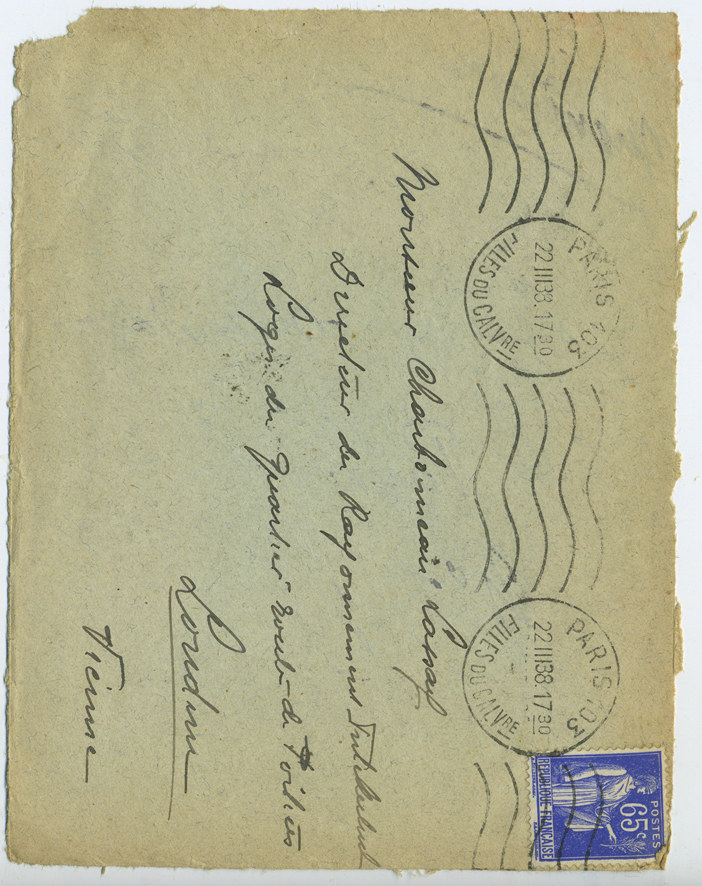 PARIS 103
22 III 38.17 30
FILLES DU CALVRE
PARIS 103
22 III 38.17 30
FILLES DU CALVRE
POSTES
65c
REPUBLIQUE FRANÇAISE
Monsieur Charbonneau Lassay
Directeur du Rayonnement Intellectuel
Logis du Quartier route de Poitiers
Loudun
Vienne